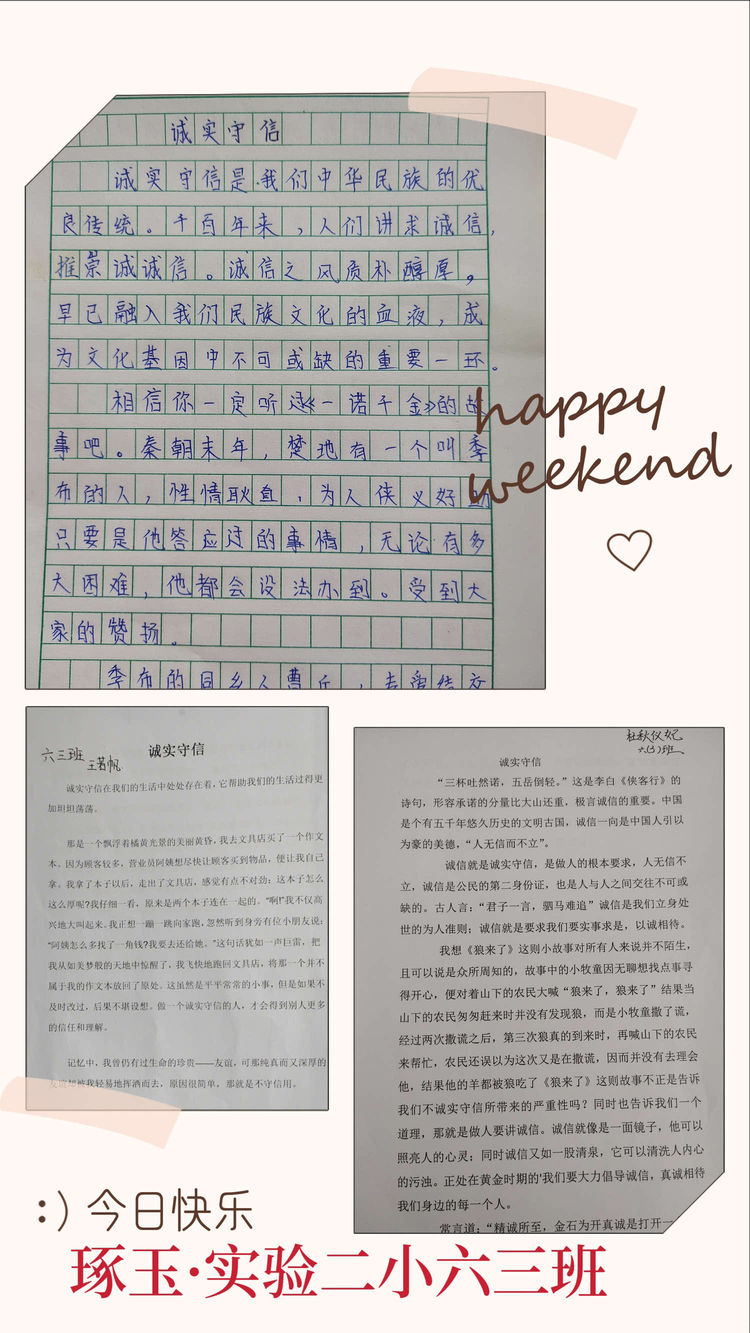 诚实守信
诚实守信是我们中华民族的优
良传统。千百年来，人们讲求诚信，
推崇诚诚信。诚信之风质朴醇厚，
早已融入我们民族文化的血液，成
为文化基因中不可或缺的重要一环。
相信你一定听过《一诺千金》的故
事吧。秦朝末年，楚地有一个叫季
布的人，性情耿直，为人侠义好
只要是他答应过的事情，无论有多
大困难，他都会设法办到。受到大
家的赞扬。
季布的同乡人曹丘，
happy
weekend
六三班
王若帆
诚实守信
诚实守信在我们的生活中处处存在着，它帮助我们的生活过得更
加坦坦荡荡。
那是一个飘浮着橘黄光景的美丽黄昏，我去文具店买了一个作文
本。因为顾客较多，营业员阿姨想尽快让顾客买到物品，便让我自己
拿。我拿了本子以后，走出了文具店，感觉有点不对劲：这本子怎么
这么厚呢?我仔细一看，原来是两个本子连在一起的。“啊!”我不仅高
兴地大叫起来。我正想一蹦一跳向家跑，忽然听到身旁有位小朋友说：
“阿姨怎么多找了一角钱?我要去还给她。”这句话犹如一声巨雷，把
我从如美梦般的天地中惊醒了，我飞快地跑回文具店，将那一个并不
属于我的作文本放回了原处。这虽然是平平常常的小事，但是如果不
及时改过，后果不堪设想。做一个诚实守信的人，才会得到别人更多
的信任和理解。
记忆中，我曾仍有过生命的珍贵——友谊，可那纯真而又深厚的
友谊却被我轻易地挥洒而去，原因很简单，那就是不守信用。
杜秋仪妃
六(3)班
诚实守信
“三杯吐然诺，五岳倒轻。”这是李白《侠客行》的
诗句，形容承诺的分量比大山还重，极言诚信的重要。中国
是个有五千年悠久历史的文明古国，诚信一向是中国人引以
为豪的美德，“人无信而不立”。
诚信就是诚实守信，是做人的根本要求，人无信不
立，诚信是公民的第二身份证，也是人与人之间交往不可或
缺的。古人言：“君子一言，驷马难追”诚信是我们立身处
世的为人准则；诚信就是要求我们要实事求是，以诚相待。
我想《狼来了》这则小故事对所有人来说并不陌生，
且可以说是众所周知的，故事中的小牧童因无聊想找点事寻
得开心，便对着山下的农民大喊“狼来了，狼来了”结果当
山下的农民匆匆赶来时并没有发现狼，而是小牧童撒了谎，
经过两次撒谎之后，第三次狼真的到来时，再喊山下的农民
来帮忙，农民还误以为这次又是在撒谎，因而并没有去理会
他，结果他的羊都被狼吃了《狼来了》这则故事不正是告诉
我们不诚实守信所带来的严重性吗？同时也告诉我们一个
道理，那就是做人要讲诚信。诚信就像是一面镜子，他可以
照亮人的心灵；同时诚信又如一股清泉，它可以清洗人内心
的污浊。正处在黄金时期的'我们要大力倡导诚信，真诚相待
我们身边的每一个人。
常言道：“精诚所至，金石为开真诚是打开一
:) 今日快乐
琢玉·实验二小六三班